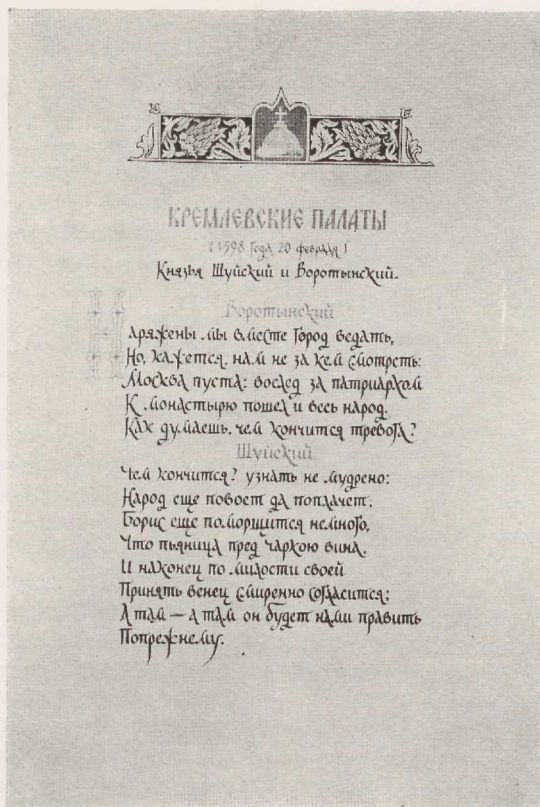 КРЕМЛЕВСКИЕ ПАЛАТЫ
(1598 года 20 февраля)
Князья Шуйский и Воротынский.
Воротынский
Наряжены мы вместе город ведать,
Но, кажется, нам не за кем смотреть:
Москва пуста; вослед за патриархом
К монастырю пошел и весь народ.
Как думаешь, чем кончится тревога?
Шуйский
Чем кончится? узнать не мудрено:
Народ еще повоет да поплачет,
Борис еще поморщится немного,
Что пьяница пред чаркою вина,
И наконец по милости своей
Принять венец смиренно согласится;
А там — а там он будет нами править
Попрежнему.